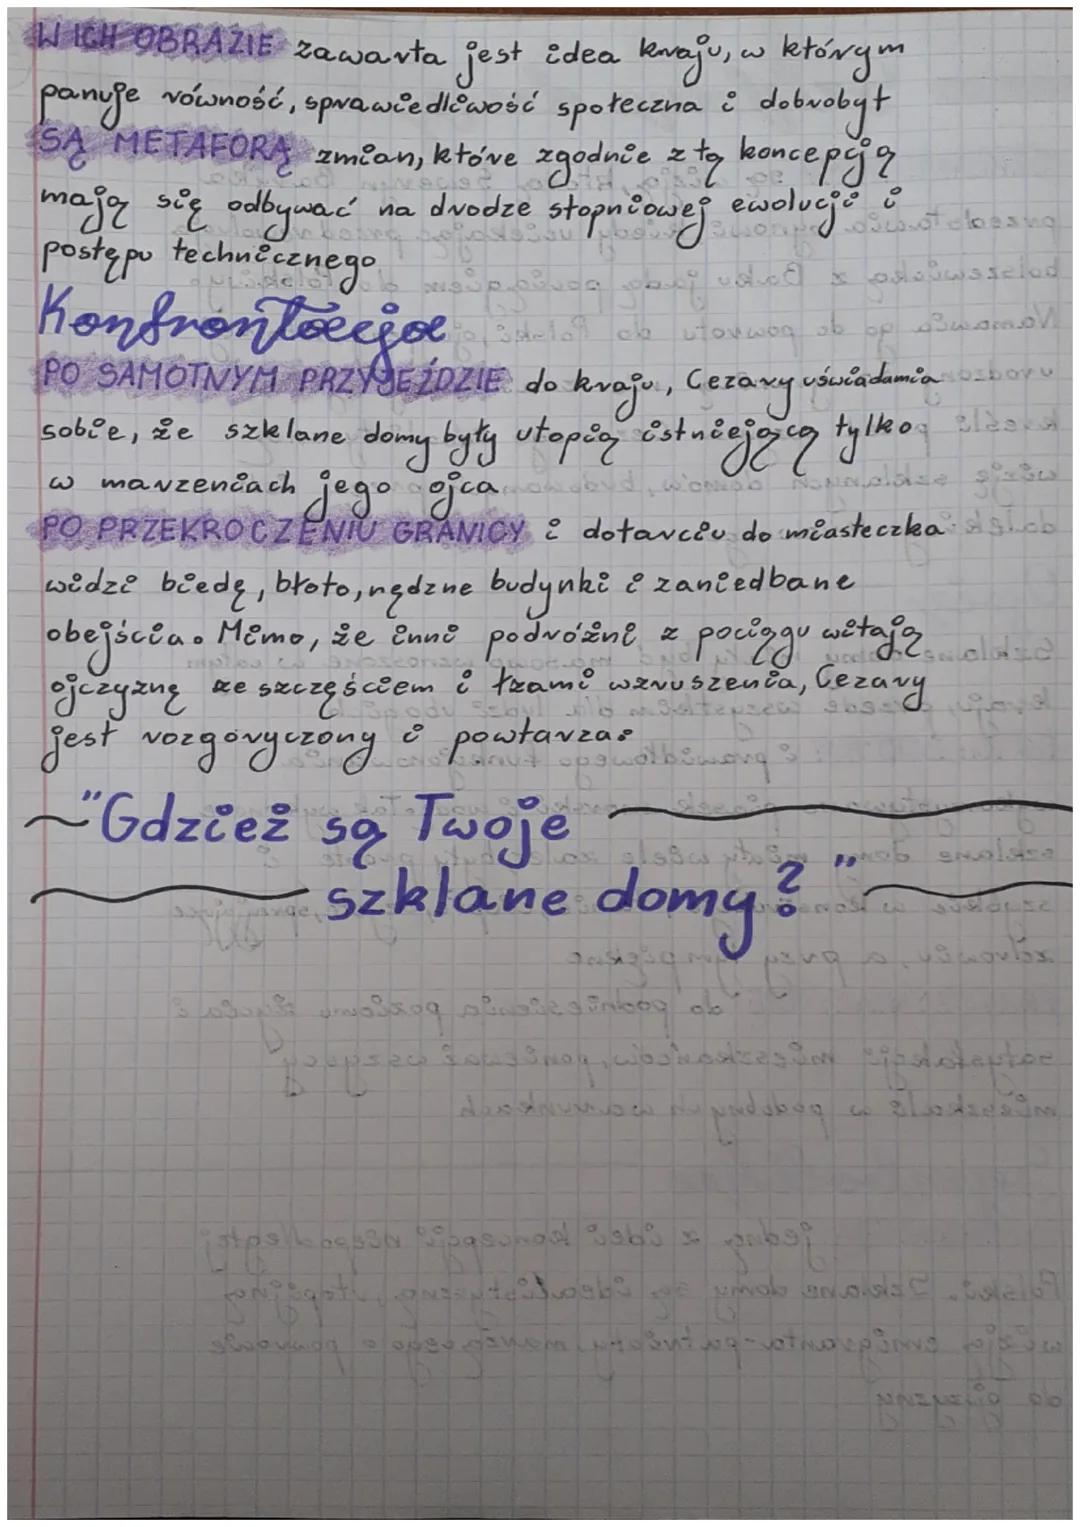 W ICH OBRAZIE zawarta jest idea kraju, w którym
panuje równość, sprawiedliwość społeczna i dobrobyt
SĄ METAFORĄ zmian, które zgodnie z tą koncepcją
mają się odbywać na drodze stopniowej ewolucji i
postępu technicznego
Konfrontacja
PO SAMOTNYM PRZYJEŹDZIE do kraju, Cezary uświadamia
sobie, że szklane domy były utopią istniejącą tylko
w marzeniach jego ojca
PO PRZEKROCZENIU GRANICY i dotarciu do miasteczka
widzi biedę, błoto, nędzne budynki i zaniedbane
obejścia. Mimo, że inni podróżni z pociągu witają
ojczyznę ze szczęściem i łzami wzruszenia, Cezary
jest rozgoryczony i powtarza:
"Gdzież są Twoje
szklane domy?"